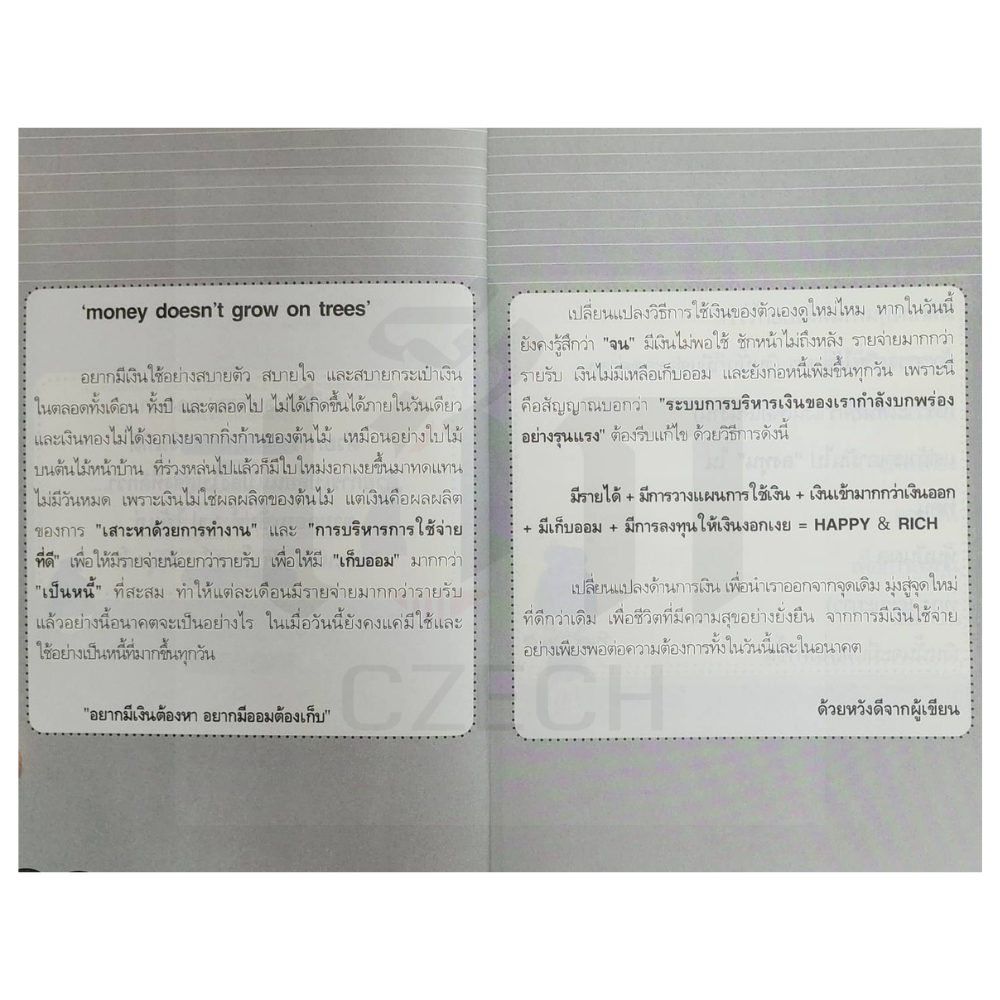 'money doesn't grow on trees'
อยากมีเงินใช้อย่างสบายตัว สบายใจ และสบายกระเป๋าเงิน
ในตลอดทั้งเดือน ทั้งปี และตลอดไป ไม่ได้เกิดขึ้นได้ภายในวันเดียว
และเงินทองไม่ได้งอกเงยจากกิ่งก้านของต้นไม้ เหมือนอย่างใบไม้
บนต้นไม้หน้าบ้าน ที่ร่วงหล่นไปแล้วก็มีใบใหม่งอกเงยขึ้นมาทดแทน
ไม่มีวันหมด เพราะเงินไม่ใช่ผลผลิตของต้นไม้ แต่เงินคือผลผลิต
ของการ "เสาะหาด้วยการทำงาน" และ "การบริหารการใช้จ่าย
ที่ดี" เพื่อให้มีรายจ่ายน้อยกว่ารายรับ เพื่อให้มี "เก็บออม" มากกว่า
"เป็นหนี้" ที่สะสม ทำให้แต่ละเดือนมีรายจ่ายมากกว่ารายรับ
แล้วอย่างนี้อนาคตจะเป็นอย่างไร ในเมื่อวันนี้ยังคงแค่มีใช้และ
ใช้อย่างเป็นหนี้ที่มากขึ้นทุกวัน
"อยากมีเงินต้องหา อยากมีออมต้องเก็บ"
เปลี่ยนแปลงวิธีการใช้เงินของตัวเองดูใหม่ไหม หากในวันนี้
ยังคงรู้สึกว่า "จน" มีเงินไม่พอใช้ ชักหน้าไม่ถึงหลัง รายจ่ายมากกว่า
รายรับ เงินไม่มีเหลือเก็บออม และยังก่อหนี้เพิ่มขึ้นทุกวัน เพราะนี่
คือสัญญาณบอกว่า "ระบบการบริหารเงินของเรากำลังบกพร่อง
อย่างรุนแรง" ต้องรีบแก้ไข ด้วยวิธีการดังนี้
มีรายได้ + มีการวางแผนการใช้เงิน + เงินเข้ามากกว่าเงินออก
+ มีเก็บออม + มีการลงทุนให้เงินงอกเงย = HAPPY & RICH
เปลี่ยนแปลงด้านการเงิน เพื่อนำเราออกจากจุดเดิม มุ่งสู่จุดใหม่
ที่ดีกว่าเดิม เพื่อชีวิตที่มีความสุขอย่างยั่งยืน จากการมีเงินใช้จ่าย
อย่างเพียงพอต่อความต้องการทั้งในวันนี้และในอนาคต
ด้วยหวังดีจากผู้เขียน
CZECH